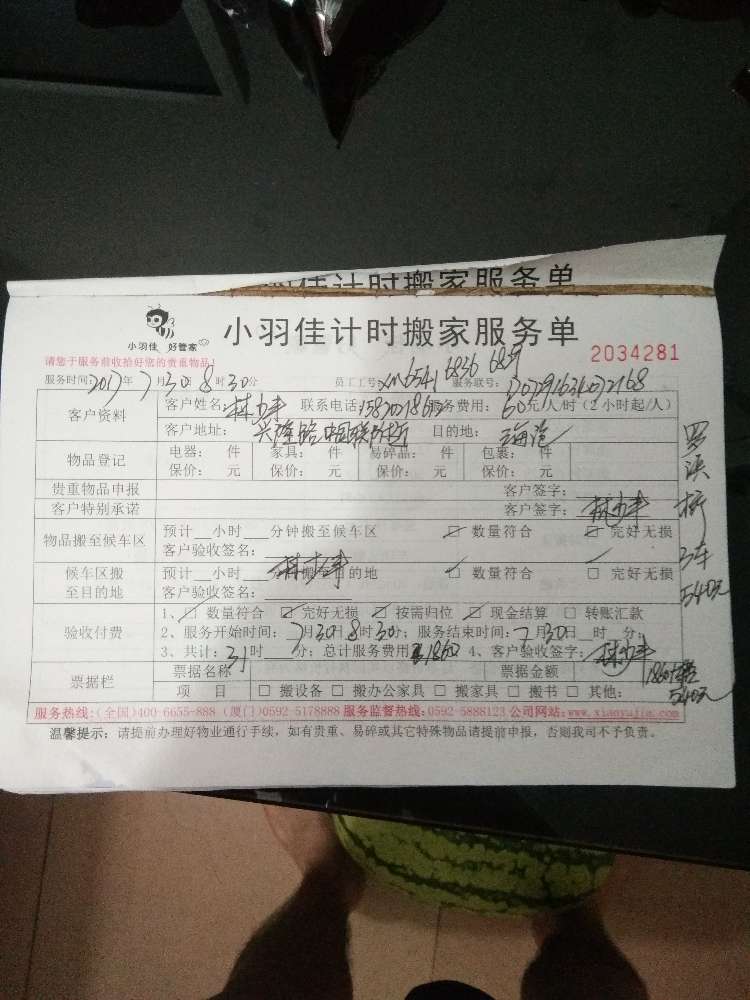 小羽佳计时搬家服务单
小羽佳 好管家
小羽佳计时搬家服务单
请您于服务前收拾好您的贵重物品!
2034281
服务时间:2017年7月30日8时30分 员工工号: XM6541 6836 服务联号:
客户资料 客户姓名: 联系电话: 服务费用: 60元/人/时(2小时起/人)
客户地址: 兴隆路 目的地:
物品登记 电器: 件 家具: 件 易碎品: 件 包裹: 件
保价: 元 保价: 元 保价: 元 保价: 元
贵重物品申报 客户签字:
客户特别承诺 客户签字:
物品搬至候车区 预计__小时__分钟搬至候车区 ☑ 数量符合 ☑ 完好无损
客户验收签名:
候车区搬至目的地 预计__小时__分钟搬至目的地 ☑ 数量符合 □ 完好无损
客户验收签名:
验收付费 1、☑ 数量符合 ☑ 完好无损 ☑ 按需归位 ☑ 现金结算 □ 转账汇款
2、服务开始时间: 7月30日8时30分; 服务结束时间: 7月30日__时__分;
3、共计: 31时__分; 总计服务费用 1860 4、客户验收签字:
票据栏 票据名称 票据金额
项 目 □ 搬设备 □ 搬办公家具 □ 搬家具 □ 搬书 □ 其他:
3车
540元
1860
540元
服务热线:(全国)400-6655-888 (厦门)0592-5178888 服务监督热线:0592-5888123 公司网站:www.xiaoyujia.com
温馨提示: 请提前办理好物业通行手续, 如有贵重、易碎或其它特殊物品请提前申报, 否则我司不予负责。